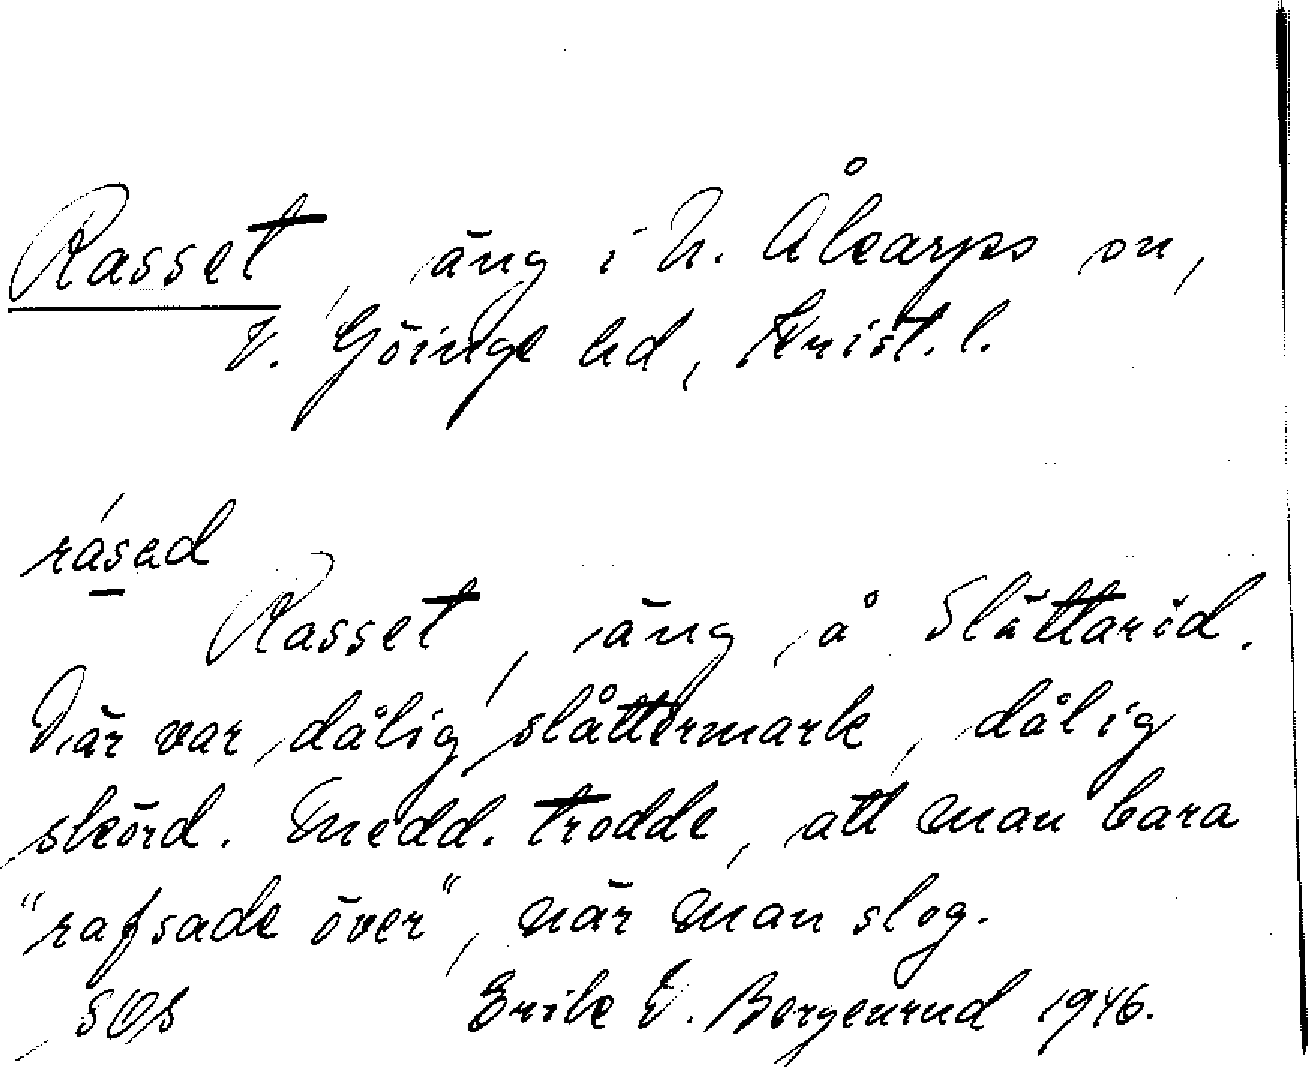 Rasset, äng i N. Åkarps sn,
V. Göinge hd, Krist. l.
rásad
Rasset, äng å Slättaröd.
Där var dålig slåttermark, dålig
skörd. Medd. trodde, att man bara
"rafsade över", när man slog.
SOS Erik V. Bergenrud 1946.